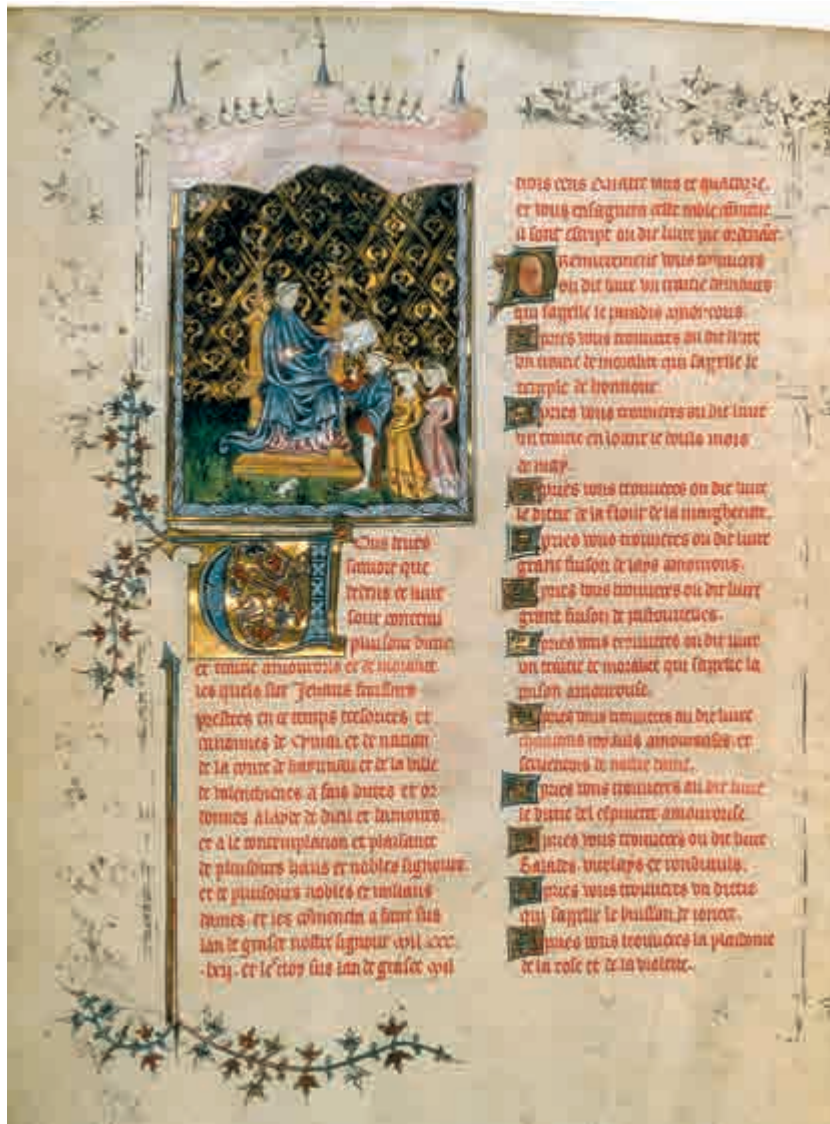 Vous deves
savoir que
dedens ce livre
sont contenu
pluisour dittie
et traitie amourous et de moralite
les quels sire Jehans froissars
prestres en ce temps tresoriers et
canonnes de Cymai et de nation
de la conte de haynnau et de la ville
de valenchienes a fais dittes et or
donnes a layde de dieu et damours
et a le contemplation et plaisance
de pluisours haus et nobles signours
et de pluisours nobles et vaillans
dames. et les comencha a faire sus
lan de grasce nostre signour mil ccc
.lxij. et les sus lan de grasce mil
trois cens Quatre vins et quatorze.
et vous ensagnera ceste table coment
il sont escript ou dit livre par ordenance.
Premierement vous trouveres
ou dit livre un traitie damours
qui sapelle le paradis amourous.
Apries vous trouveres ou dit livre
un traitie de moralite qui sapelle le
temple de honnour.
Apries vous trouveres ou dit livre
un traitie en le mois
de may.
Apries vous trouveres ou dit livre
le dittie de la flour de la margherite.
Apries vous trouveres ou dit livre
grant fuison de lays amourous.
Apries vous trouveres ou dit livre
grant fuison de pastourieles.
Apries vous trouveres ou dit livre
un traitie de moralite qui sapelle la
prison amourouse.
Apries vous trouveres ou dit livre
chancons roiauls amourouses et
servientois de nostre dame.
Apries vous trouveres ou dit livre
le dittie del espinette amourouse.
Apries vous trouveres ou dit livre
Balades. virelays et rondiauls.
Apries vous trouveres un dittie
qui sapelle le buisson de jonece.
Apries vous trouveres la plaidorie
de la rose et de la violette.